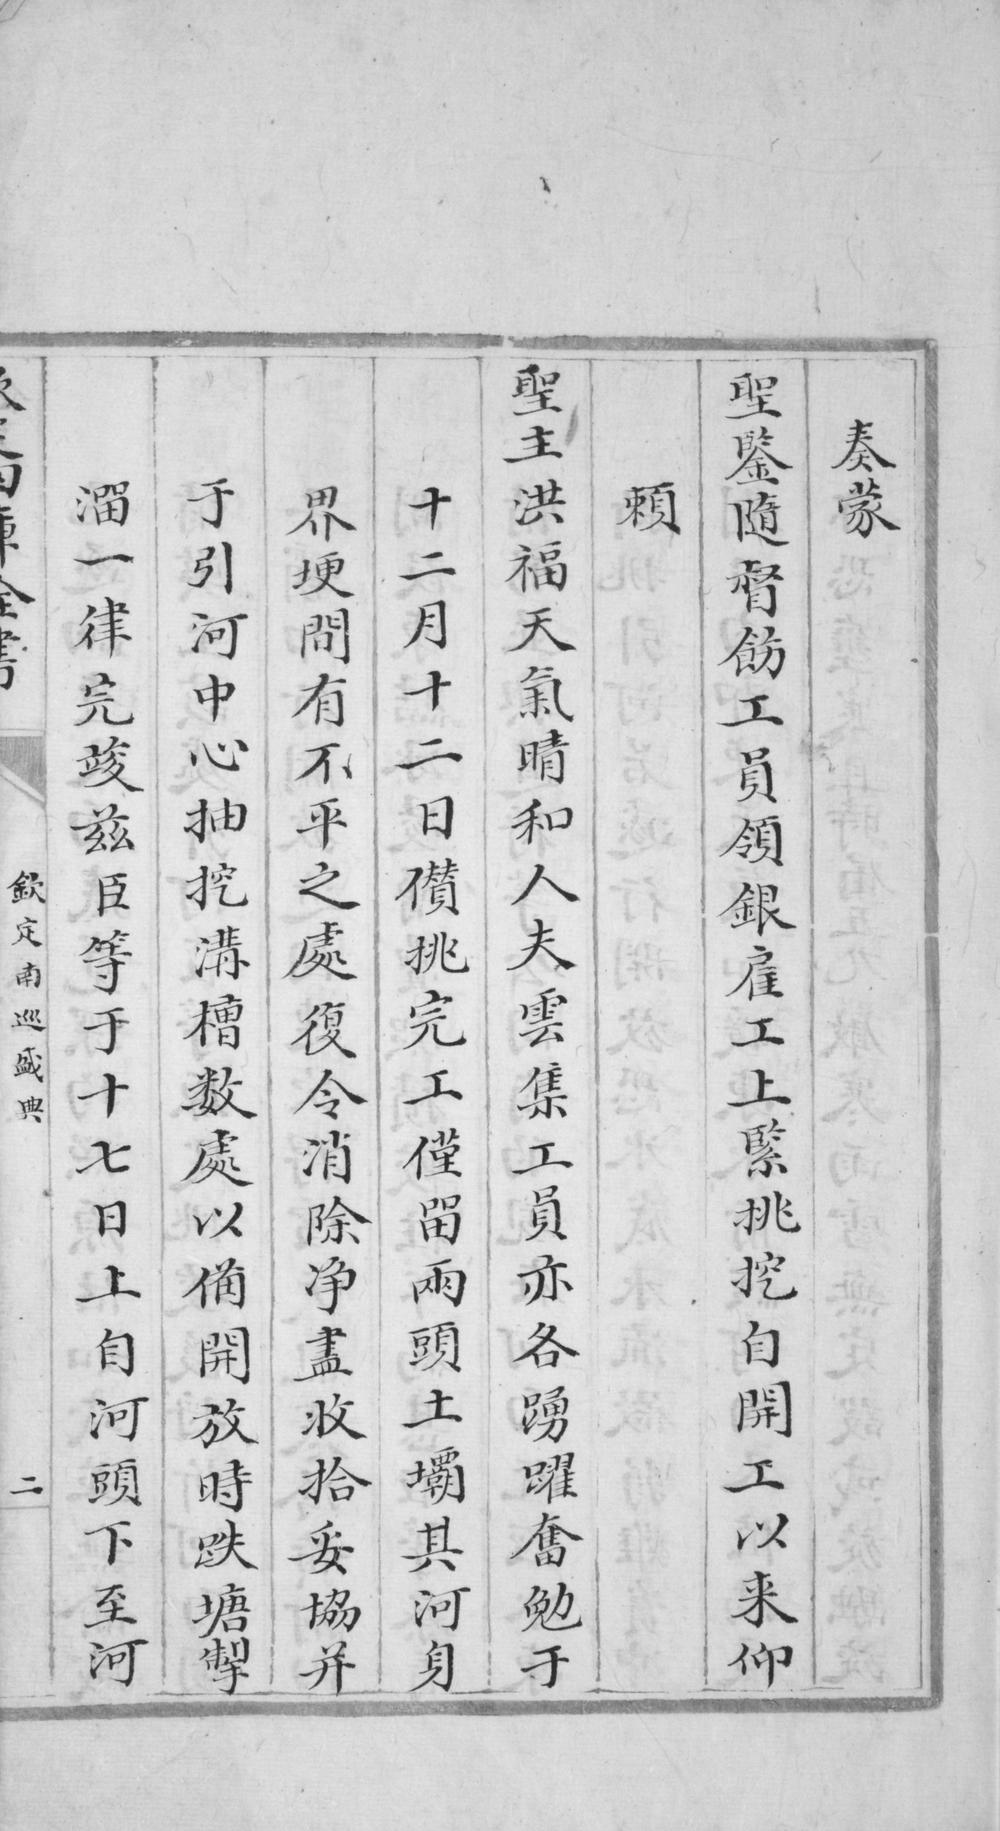 奏蒙
聖鑒隨督飭工員領銀雇工上緊挑挖自開工以来仰
頼
聖主洪福天氣晴和人夫雲集工員亦各踴躍奮勉于
十二月十二日儹挑完工僅留兩頭土壩其河身
界埂間有不平之處復令消除净盡收拾妥協并
于引河中心抽挖溝槽数處以備開放時跌塘掣
溜一律完竣兹臣等于十七日上自河頭下至河
欽定四庫全書
欽定南巡盛典
二